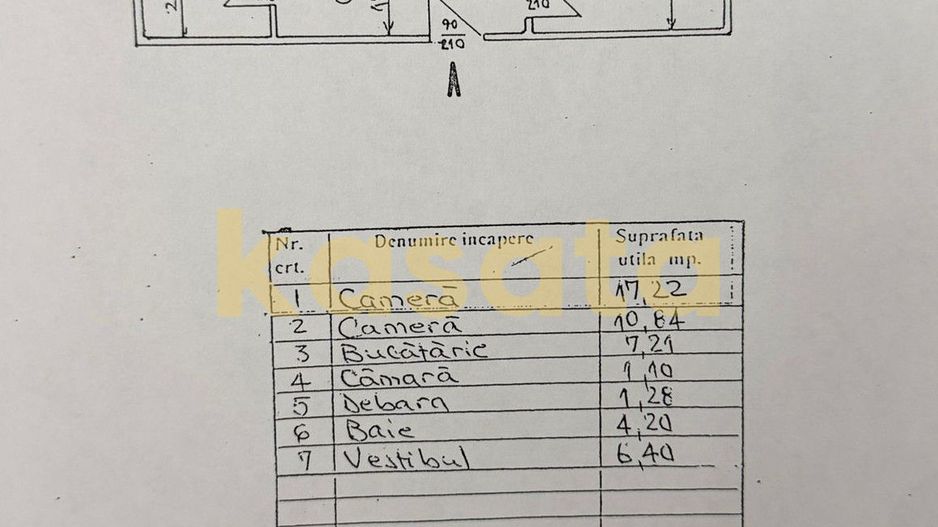 2
210
90
210
kasata
Nr. crt. Denumire incapere Suprafata utila mp.
1 Cameră 17,22
2 Cameră 10,84
3 Bucătărie 7,21
4 Cămară 1,10
5 Debara 1,28
6 Baie 4,20
7 Vestibul 6,40